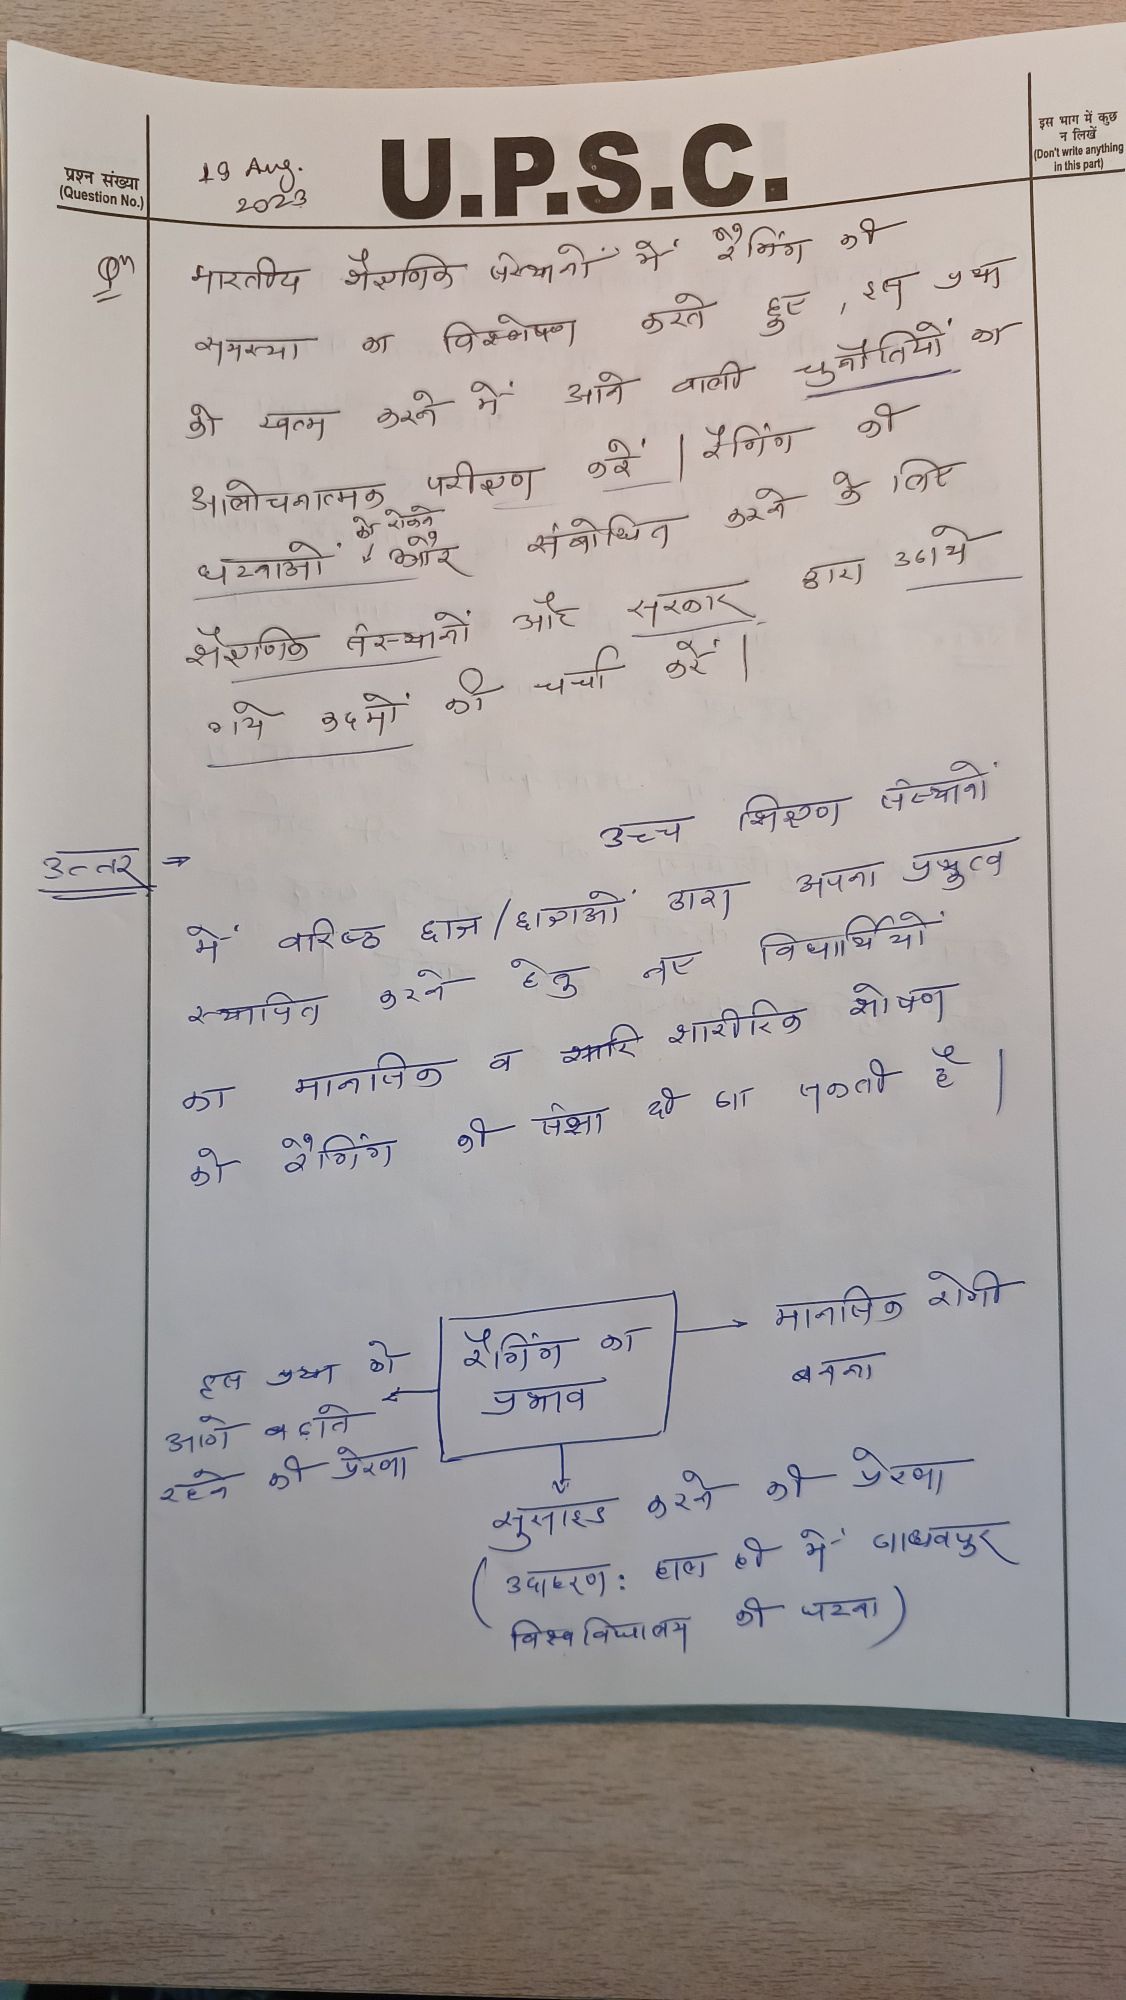 प्रश्न संख्या
(Question No.)
19 Aug.
2023
U.P.S.C.
इस भाग में कुछ
न लिखें
(Don't write anything
in this part)
Qn
भारतीय शैक्षणिक संस्थानों में रैगिंग की
समस्या का विश्लेषण करते हुए, इस प्रथा
को खत्म करने में आने वाली चुनौतियों का
आलोचनात्मक परीक्षण करें। रैगिंग की
घटनाओं को रोकने और संबोधित करने के लिए
शैक्षणिक संस्थानों और सरकार द्वारा उठाये
गये कदमों की चर्चा करें।
उत्तर ⇒
उच्च शिक्षण संस्थानों
में वरिष्ठ छात्र/छात्राओं द्वारा अपना प्रभुत्व
स्थापित करने हेतु नए विद्यार्थियों
का मानसिक व शारीरिक शोषण
को रैगिंग की संज्ञा दी जा सकती है।
रैगिंग का
प्रभाव
मानसिक रोगी
बनना
इस प्रथा को
आगे बढ़ाते
रहने की प्रेरणा
सुसाइड करने की प्रेरणा
(उदाहरण: हाल ही में जाधवपुर
विश्वविद्यालय की घटना)